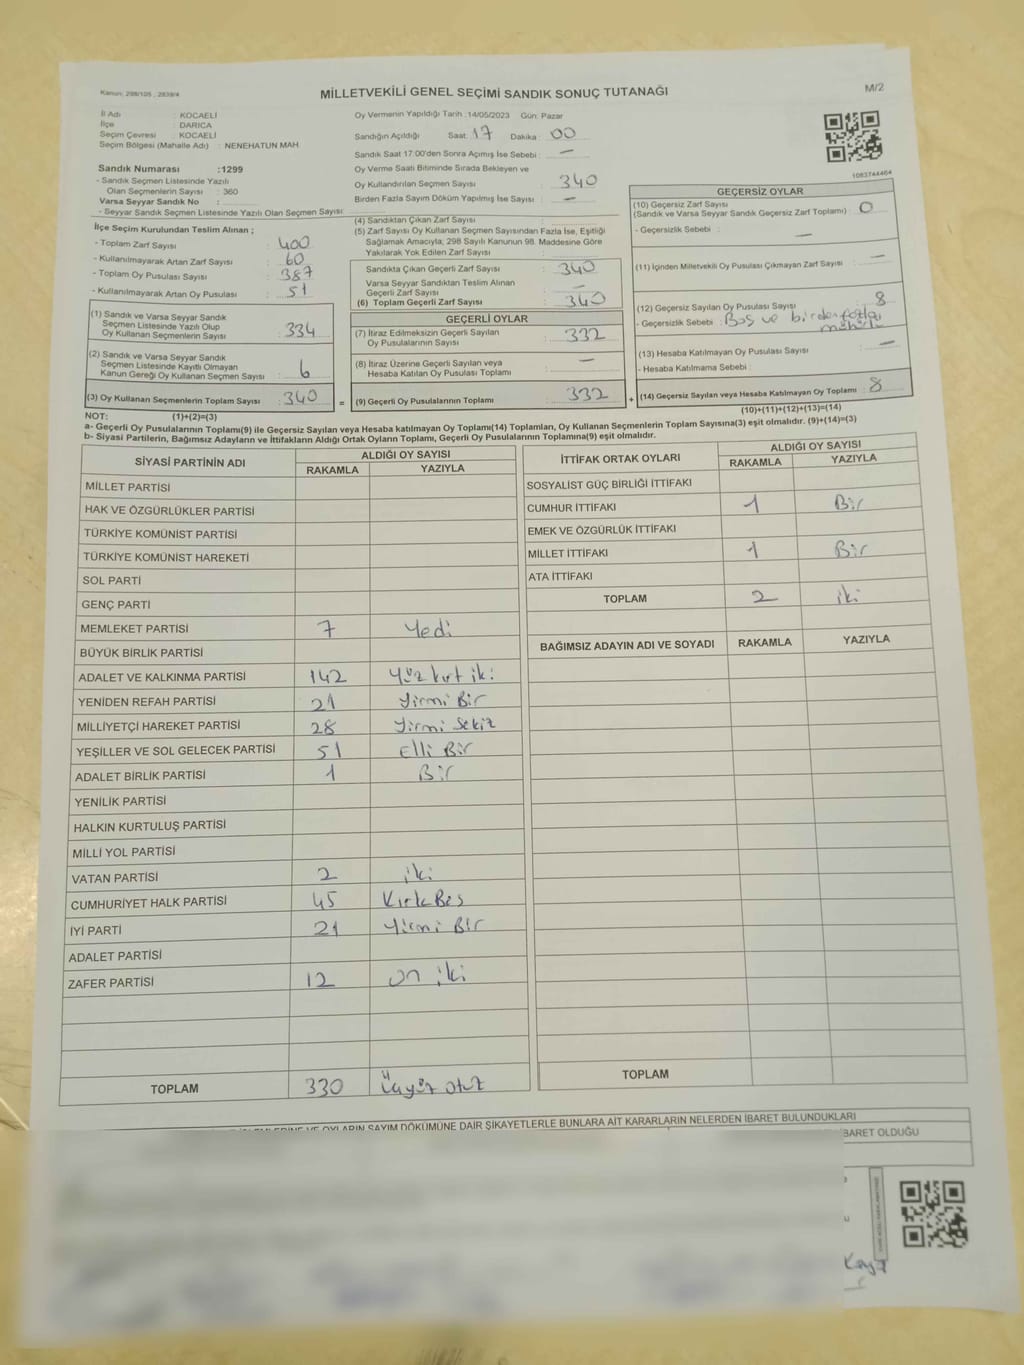 Kanun: 298/105 , 2839/4
MİLLETVEKİLİ GENEL SEÇİMİ SANDIK SONUÇ TUTANAĞI
M/2
İl Adı : KOCAELİ
İlçe : DARICA
Seçim Çevresi : KOCAELİ
Seçim Bölgesi (Mahalle Adı) : NENEHATUN MAH
Sandık Numarası :1299
- Sandık Seçmen Listesinde Yazılı
Olan Seçmenlerin Sayısı : 360
Varsa Seyyar Sandık No :
- Seyyar Sandık Seçmen Listesinde Yazılı Olan Seçmen Sayısı:
İlçe Seçim Kurulundan Teslim Alınan ;
- Toplam Zarf Sayısı : 400
- Kullanılmayarak Artan Zarf Sayısı : 60
- Toplam Oy Pusulası Sayısı : 387
- Kullanılmayarak Artan Oy Pusulası : 51
(1) Sandık ve Varsa Seyyar Sandık
Seçmen Listesinde Yazılı Olup
Oy Kullanan Seçmenlerin Sayısı : 334
(2) Sandık ve Varsa Seyyar Sandık
Seçmen Listesinde Kayıtlı Olmayan
Kanun Gereği Oy Kullanan Seçmen Sayısı : 6
(3) Oy Kullanan Seçmenlerin Toplam Sayısı : 340
Oy Vermenin Yapıldığı Tarih :14/05/2023 Gün: Pazar
Sandığın Açıldığı Saat: 17 Dakika : 00
Sandık Saat 17:00'den Sonra Açmış İse Sebebi : —
Oy Verme Saati Bitiminde Sırada Bekleyen ve
Oy Kullandırılan Seçmen Sayısı : 340
Birden Fazla Sayım Döküm Yapılmış İse Sayısı : —
(4) Sandıktan Çıkan Zarf Sayısı :
(5) Zarf Sayısı Oy Kullanan Seçmen Sayısından Fazla İse, Eşitliği
Sağlamak Amacıyla; 298 Sayılı Kanunun 98. Maddesine Göre
Yakılarak Yok Edilen Zarf Sayısı :
Sandıkta Çıkan Geçerli Zarf Sayısı : 340
Varsa Seyyar Sandıktan Teslim Alınan
Geçerli Zarf Sayısı : —
(6) Toplam Geçerli Zarf Sayısı : 340
GEÇERLİ OYLAR
(7) İtiraz Edilmeksizin Geçerli Sayılan
Oy Pusulalarının Sayısı : 332
(8) İtiraz Üzerine Geçerli Sayılan veya
Hesaba Katılan Oy Pusulası Toplamı : —
= (9) Geçerli Oy Pusulalarının Toplamı : 332
1083744464
GEÇERSİZ OYLAR
(10) Geçersiz Zarf Sayısı
(Sandık ve Varsa Seyyar Sandık Geçersiz Zarf Toplamı) : 0
- Geçersizlik Sebebi : —
(11) İçinden Milletvekili Oy Pusulası Çıkmayan Zarf Sayısı : —
(12) Geçersiz Sayılan Oy Pusulası Sayısı : 8
- Geçersizlik Sebebi : Boş ve birden fazla
mühürlü
(13) Hesaba Katılmayan Oy Pusulası Sayısı : —
- Hesaba Katılmama Sebebi :
+ (14) Geçersiz Sayılan veya Hesaba Katılmayan Oy Toplamı : 8
NOT: (1)+(2)=(3)
(10)+(11)+(12)+(13)=(14)
a- Geçerli Oy Pusulalarının Toplamı(9) ile Geçersiz Sayılan veya Hesaba katılmayan Oy Toplamı(14) Toplamları, Oy Kullanan Seçmenlerin Toplam Sayısına(3) eşit olmalıdır. (9)+(14)=(3)
b- Siyasi Partilerin, Bağımsız Adayların ve İttifakların Aldığı Ortak Oyların Toplamı, Geçerli Oy Pusulalarının Toplamına(9) eşit olmalıdır.
SİYASİ PARTİNİN ADI ALDIĞI OY SAYISI
RAKAMLA YAZIYLA
MİLLET PARTİSİ
HAK VE ÖZGÜRLÜKLER PARTİSİ
TÜRKİYE KOMÜNİST PARTİSİ
TÜRKİYE KOMÜNİST HAREKETİ
SOL PARTİ
GENÇ PARTİ
MEMLEKET PARTİSİ 7 Yedi
BÜYÜK BİRLİK PARTİSİ
ADALET VE KALKINMA PARTİSİ 142 Yüz kırk iki
YENİDEN REFAH PARTİSİ 21 Yirmi Bir
MİLLİYETÇİ HAREKET PARTİSİ 28 Yirmi Sekiz
YEŞİLLER VE SOL GELECEK PARTİSİ 51 Elli Bir
ADALET BİRLİK PARTİSİ 1 Bir
YENİLİK PARTİSİ
HALKIN KURTULUŞ PARTİSİ
MİLLİ YOL PARTİSİ
VATAN PARTİSİ 2 iki
CUMHURİYET HALK PARTİSİ 45 Kırk Beş
İYİ PARTİ 21 Yirmi Bir
ADALET PARTİSİ
ZAFER PARTİSİ 12 on iki
TOPLAM 330 Üçyüz otuz
İTTİFAK ORTAK OYLARI ALDIĞI OY SAYISI
RAKAMLA YAZIYLA
SOSYALİST GÜÇ BİRLİĞİ İTTİFAKI
CUMHUR İTTİFAKI 1 Bir
EMEK VE ÖZGÜRLÜK İTTİFAKI
MİLLET İTTİFAKI 1 Bir
ATA İTTİFAKI
TOPLAM 2 iki
BAĞIMSIZ ADAYIN ADI VE SOYADI RAKAMLA YAZIYLA
TOPLAM
VE OYLARIN SAYIM DÖKÜMÜNE DAİR ŞİKAYETLERLE BUNLARA AİT KARARLARIN NELERDEN İBARET BULUNDUKLARI
BARET OLDUĞU
Kaya